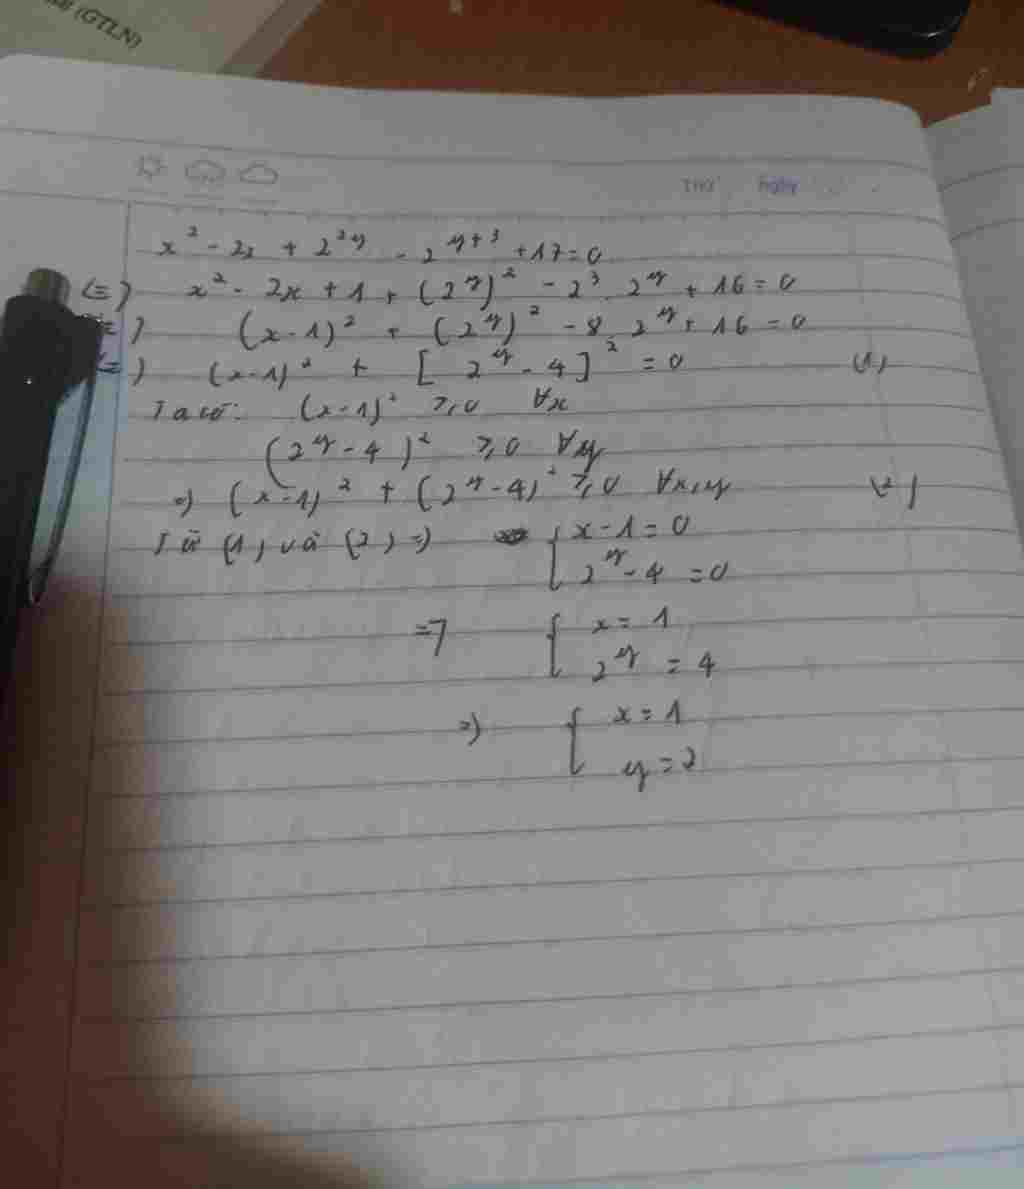 (GTLN)
Thứ Ngày
x² - 2x + 2^{2y} - 2^{y+3} + 17 = 0
(=) x² - 2x + 1 + (2^y)² - 2³. 2^y + 16 = 0
(=) (x-1)² + (2^y)² - 8. 2^y + 16 = 0
(=) (x-1)² + [2^y - 4]² = 0 (1)
Ta có: (x-1)² ≥ 0 ∀x
(2^y - 4)² ≥ 0 ∀y
=) (x-1)² + (2^y - 4)² ≥ 0 ∀x,y (2)
Từ (1) và (2) =) { x - 1 = 0
2^y - 4 = 0
=> { x = 1
2^y = 4
=) { x = 1
y = 2